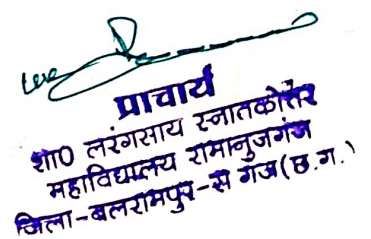 प्राचार्य
शा0 लरंगसाय स्नातकोत्तर
महाविद्यालय रामानुजगंज
जिला-बलरामपुर-स गंज (छ.ग.)